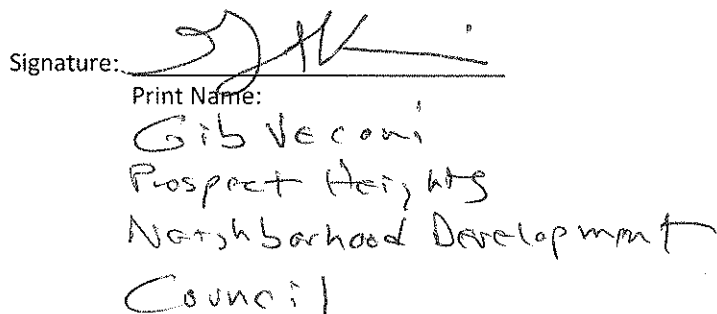 Signature:
Print Name:
Gib Veconi
Prospect Heights
Neighborhood Development
Council